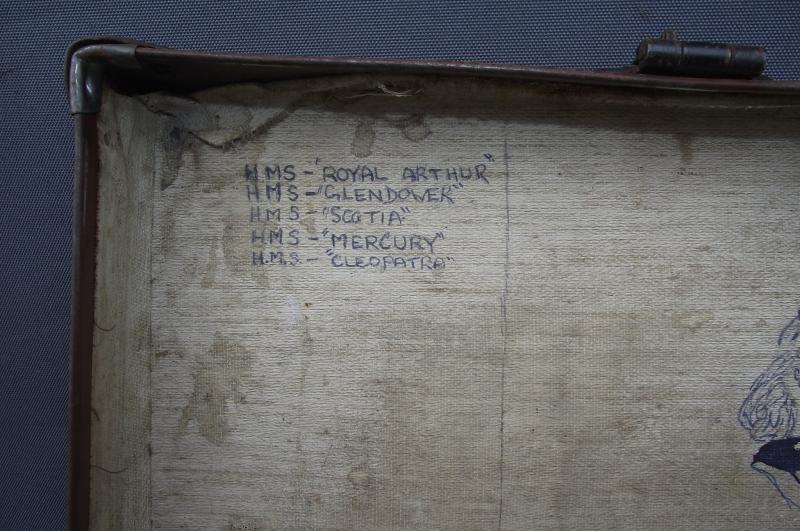 HMS - "ROYAL ARTHUR"
HMS - "GLENDOWER"
HMS - "SCOTIA"
HMS - "MERCURY"
H.M.S. - "CLEOPATRA"